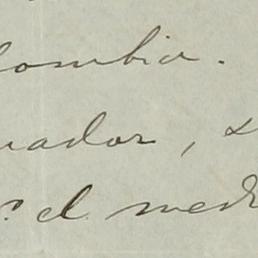 lombia.
uador, &
? el med